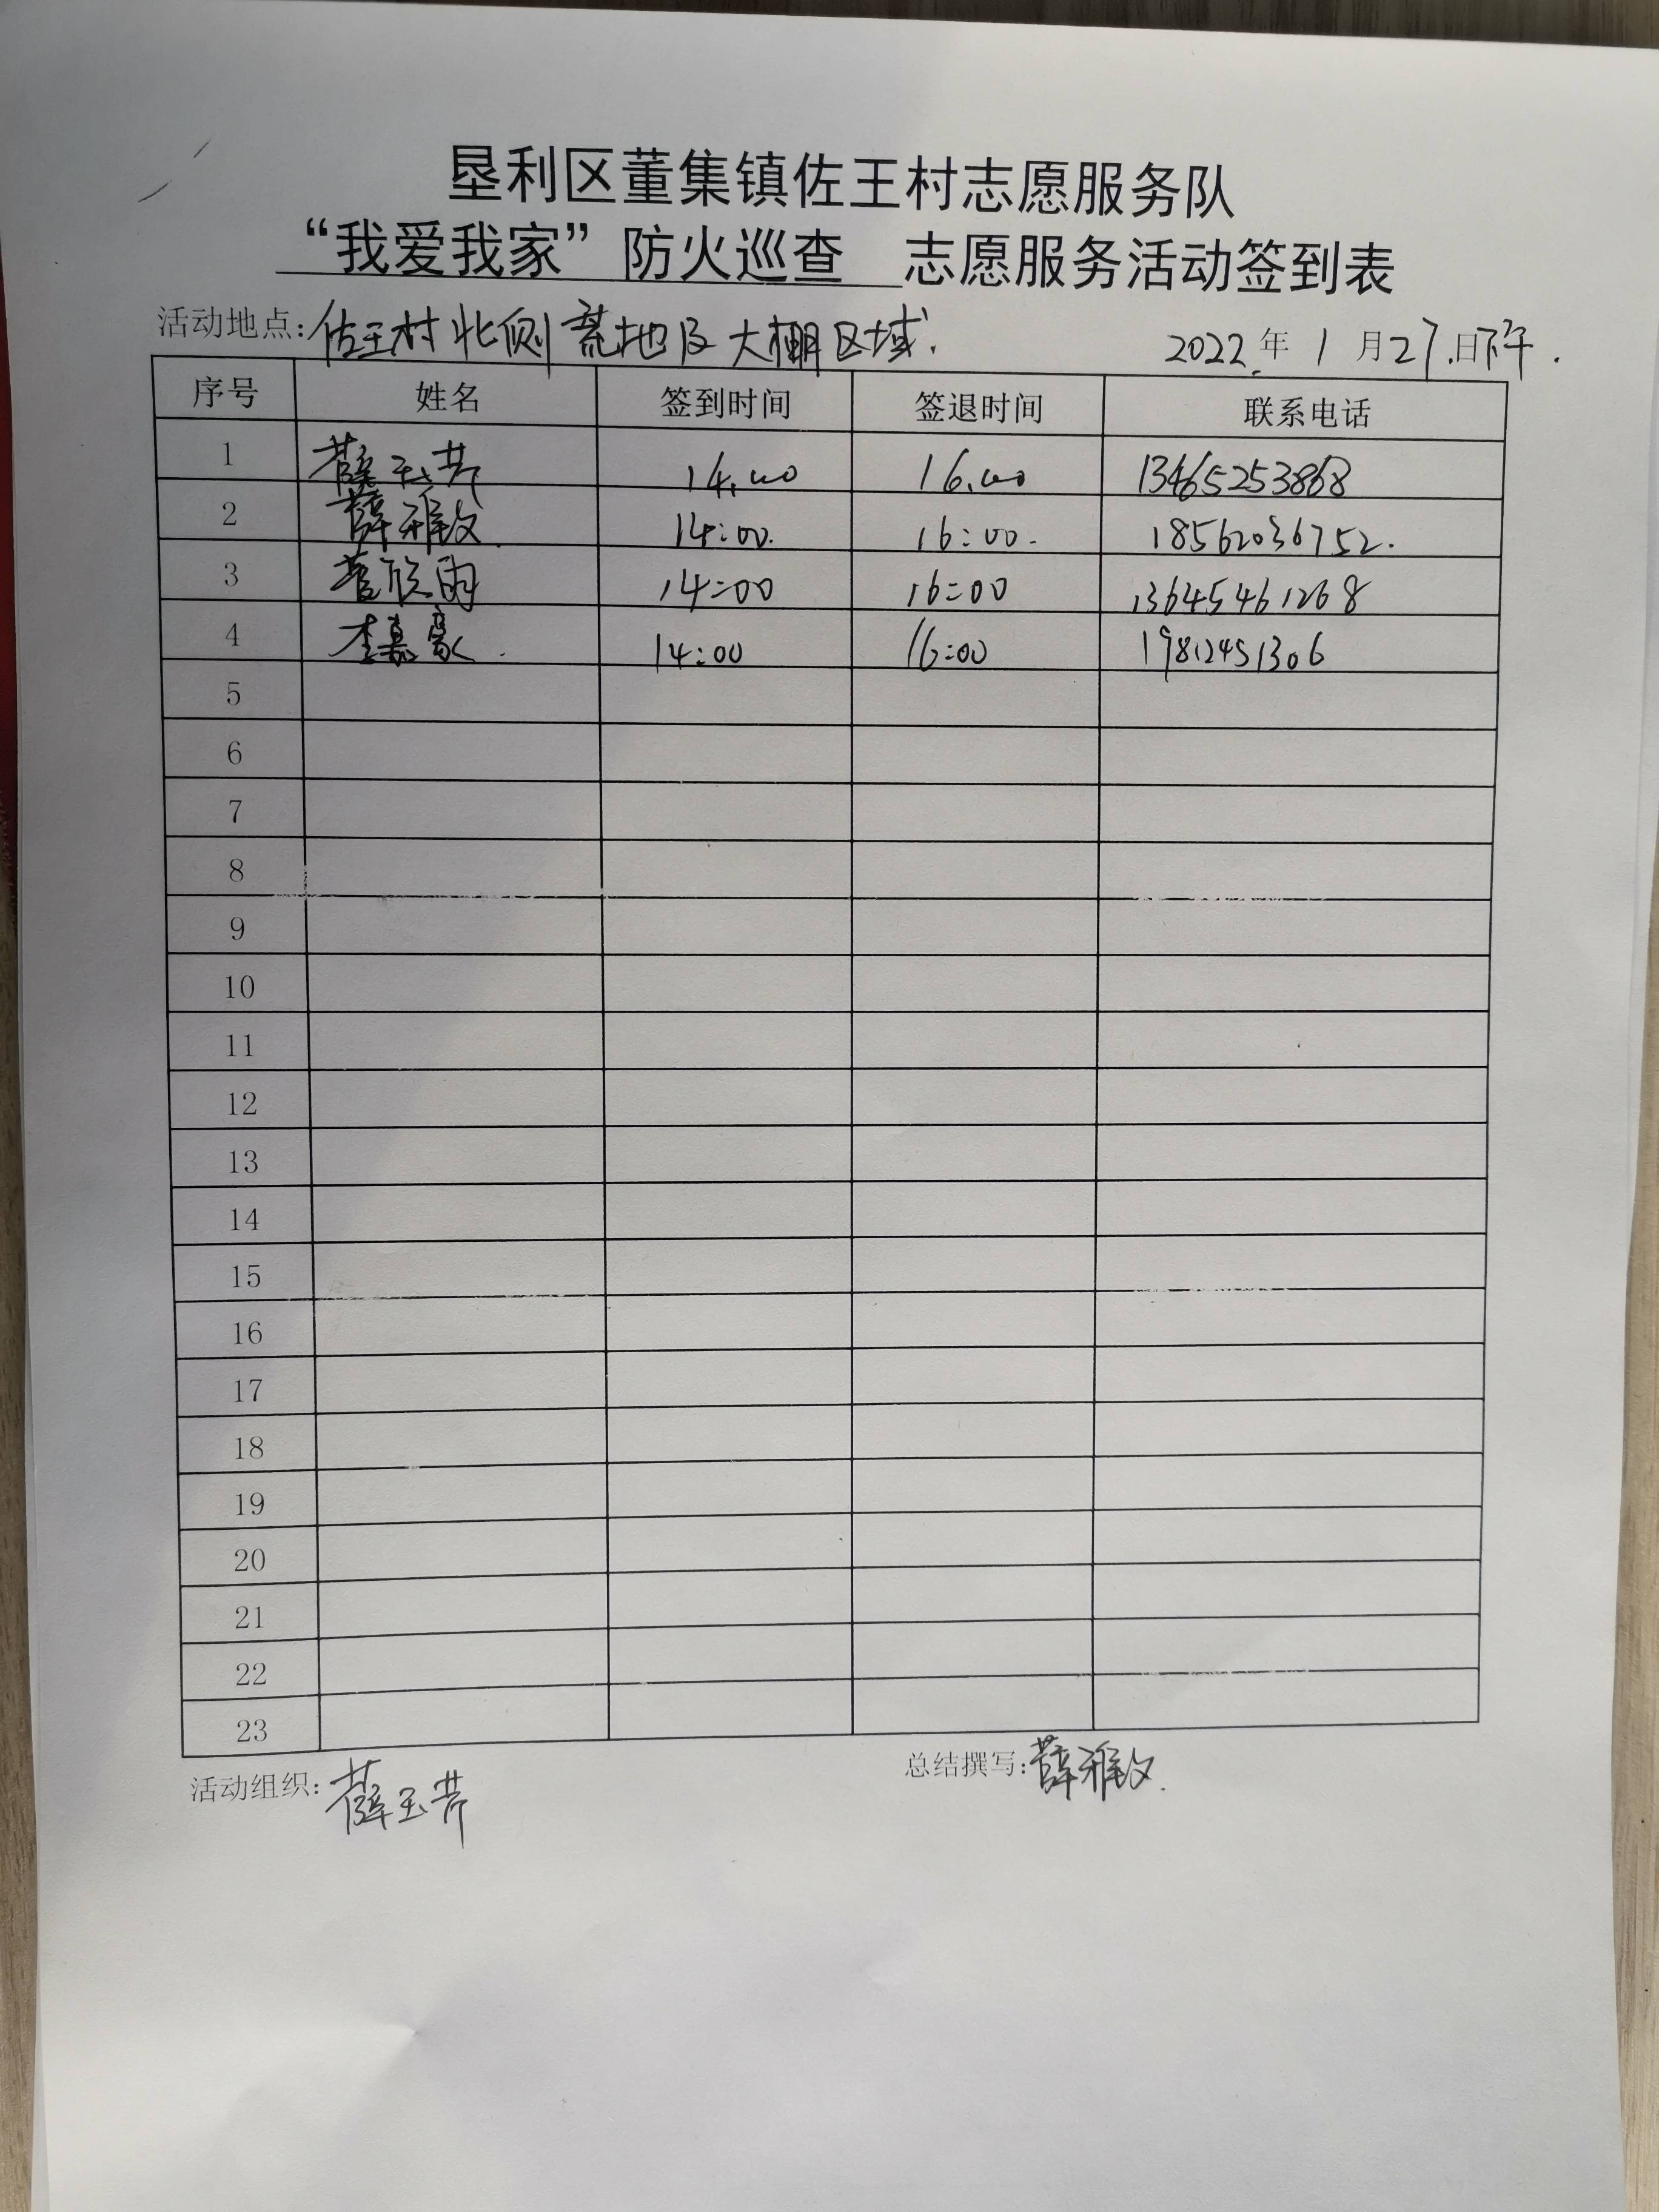 垦利区董集镇佐王村志愿服务队
“我爱我家”防火巡查 志愿服务活动签到表
活动地点：佐王村北侧荒地及大棚区域. 2022年1月27日下午.
序号 姓名 签到时间 签退时间 联系电话
1 薛玉芹 14:00 16:00 13465253868
2 薛雅文 14:00. 16:00. 18562036752.
3 14:00 16:00 13645461268
4 李嘉豪. 14:00 16:00 19812451306
5
6
7
8
9
10
11
12
13
14
15
16
17
18
19
20
21
22
23
活动组织：薛玉芹 总结撰写：薛雅文.